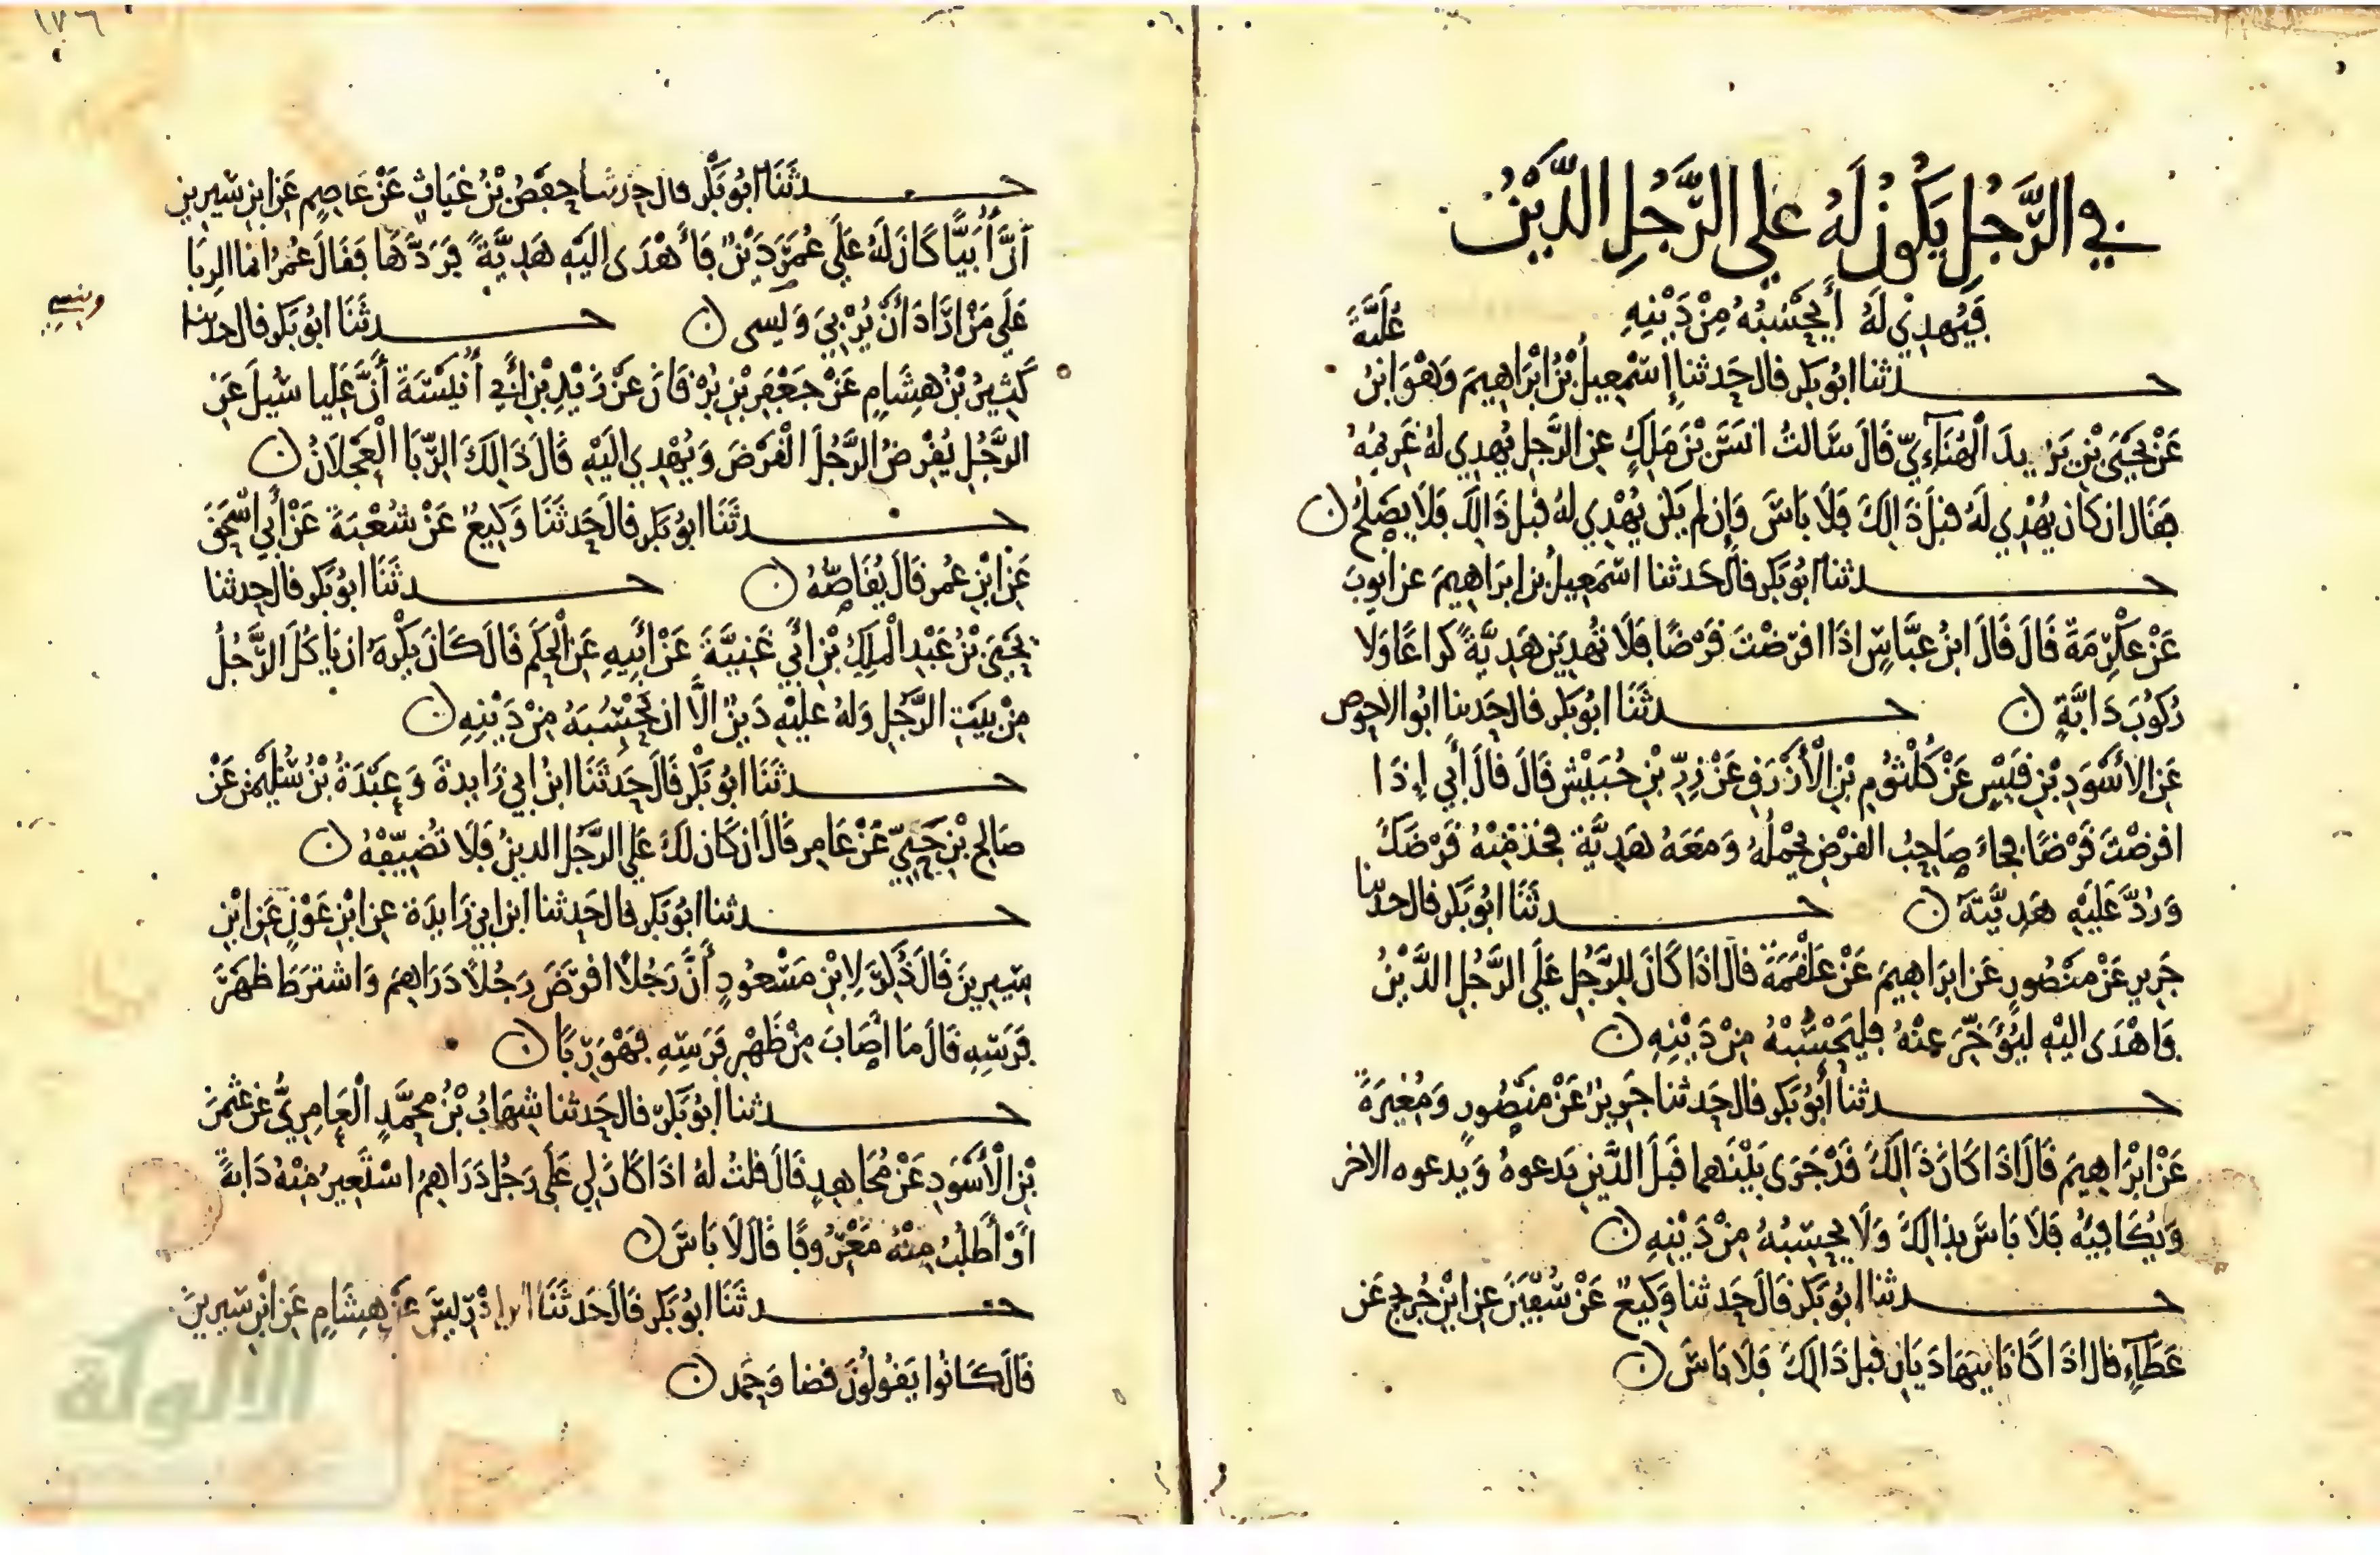 في الرَّجُلِ يَكُونُ لَهُ عَلَى الرَّجُلِ الدَّيْنُ
فَيُهدِي لَهُ أَيَحْسُبُهُ مِنْ دَيْنِهِ
حدثنا ابُو بَكر قال حَدثنا إِسْمعِيلُ بْنُ ابْرَاهِيمَ وَهْوَ ابْنُ عُلَيَّةَ
عَنْ يَحْيَى بْنِ يَزيدَ الْهُنَآءِيِّ قَالَ سَالتُ انَسَ بْنَ مَلِكٍ عنِ الرَّجلِ يُهدِي لهُ غَرِيمُهُ
فَقَال ان كان يُهْدِي لَهُ قبلَ ذَالِكَ فَلَا بَاسَ وَإِن لم يَكن يُهْدِي لهُ قبل ذَالِكَ فَلَا يَصْلحُ ن
حدثنا ابُو بَكر قال حَدثنا اسْمَعِيلُ بن ابرَاهِيمَ عن ايوبَ
عَنْ عِكْرِمَةَ قَالَ قَالَ ابنُ عبَّاسٍ اذَا اقرَضْتَ قَرْضًا فَلَا تُهدِيَن هَدِيَّةً كراعًا وَلا
رُكُوبَ دَابَّةٍ ن حدثَنَا ابُو بَكر قال حَدثنا ابُوا الاحوص
عَنِ الاَسْوَدِ بْنِ قَيْسٍ عَنْ كُلْثُومِ بْنِ الْأَقْرَقِ عَنْ زِرِّ بْنِ حُبَيْش قَالَ قالَ أُبي إِذَا
اقرضْتَ قَرْضًا فجاءَ صاحِبُ القرْضِ يحْملُهُ وَمَعَهُ هَدِيَّة فخُذ مِنْهُ قَرْضَكَ
وَرُدَّ عَلَيْهِ هَدِيَّتَهُ ن حدثَنَا ابُو بَكر قال حدثنا
جَرِير عَنْ مَنْصُورٍ عَن ابرَاهِيمَ عَنْ عَلْقَمَةَ قالَ اذَا كَانَ لِلرَّجُلِ عَلَى الرَّجُلِ الدَّيْنُ
فَاهْدَى الَيْهِ لِيُؤَخِّرَ عنْهُ فَليَحْسُبْهُ مِنْ دَيْنِهِ ن
حدثنا أَبُو بَكر قال حَدثنا جَرِيرٌ عَنْ مَنْصُورٍ وَمُغِيرَةَ
عَنْ ابْرَاهِيمَ قَالَ اذَا كَانَ ذَالِكَ قَدْ جَرَى بَيْنَهما قَبلَ الدَّيْنِ يَدعوهُ وَيدعوه الاخر
وَيُكَافِيهُ فَلَا بَاسَ بذالِكَ وَلَا يحسِبُهُ مِنْ دَيْنِهِ ن
حدثنا ابُو بَكر قَالَ حَدثنا وَكِيعٌ عَنْ سُفْيَنَ عنِ ابْنِ جُرَيْجٍ عَن
عَطَآءٍ قال اذَا كَانَا يتهَادَيَانِ قَبل ذَالِكَ فَلَا بَاسَ ن
١٧٦
حدثَنَا ابُو بَكْر قال حدثنا حفْصُ بْنُ غيَاثٍ عَنْ عَاصِمٍ عَنِ ابنِ سِيرِينَ
انَّ أُبَيًّا كَانَ لَهُ عَلَى عُمَرَ دَيْنٌ فَأَهْدَى الَيْهِ هَدِيَّةً فَرَدَّهَا فَقَالَ عُمَرُ انما الرِبَا
عَلَى مَنْ ارَادَ أَنْ يُرْبِيَ وَيسى ن حدثَنَا ابُو بَكر قال حدثنا
وينسى
كَثِيرُ بْنُ هِشَامٍ عَنْ جَعْفَرِ بْنِ بُرْقَانَ عَنْ زَيْدِ بْنِ أَبِي أُنَيْسَةَ أَنَّ عَليا سُيلَ عَنِ
الرَّجُلِ يُقْرِضُ الرَّجُلَ الْقَرْضَ وَيُهْدِي الَيْهِ قَالَ ذَالِكَ الرِّبَا الْعَجْلَانُ ن
حدثَنَا ابُو بَكر قالَ حَدثَنَا وَكِيعٌ عَنْ شُعْبَةَ عَنْ أَبِي اسْحَقَ
عَنِ ابْنِ عُمر قَالَ يُقَاصُّهُ ن حدثَنَا ابُو بَكر قال حدثنا
يَحْيَى بْنُ عَبْدِ الْمَلِكِ بْنِ أَبِي غَنِيَّةَ عَنْ ابِيهِ عَنِ الْحَكَمِ قَالَ كَانَ يكْرهُ ان يَاكُلَ الرَّجُلُ
مِنْ بيْتِ الرَّجُلِ وَلهُ عليْهِ دَيْنٌ الَّا ان يَحْسُبَهُ مِنْ دَيْنِهِ ن
حدثَنَا ابُو بَكْر قَالَ حَدثَنَا ابنُ ابي زَايدةَ وَعبْدَةُ بْنُ سُلَيْمَنَ عَنْ
صَالِحِ بْنِ حَيٍّ عَنْ عَامِر قَالَ ان كَان لكَ عَلَى الرَّجُلِ الدينُ فَلَا تُضَيِّفْهُ ن
حدثنا ابُو بَكر قال حَدثنا ابن ابي زَايدَة عنِ ابْنِ عَوْنٍ عَنِ ابْنِ
سِيرِينَ قَالَ ذُكِرَ لِابْنِ مَسْعُودٍ أَنَّ رَجُلًا اقرَضَ رَجُلًا دَرَاهِمَ وَاشترَطَ ظهْرَ
فَرَسِهِ قَالَ مَا أَصَابَ مِنْ ظَهْرِ فَرَسِهِ فَهْوَ رِبًا ن
حدثنا ابُو بَكر قال حَدثنا شِهَابُ بْنُ مُحَمَّدٍ الْعَامِرِيُّ عَنْ عُثْمَنَ
بْنِ الْأَسْوَدِ عَنْ مُجَاهِدٍ قَالَ قلتُ لهُ اذَا كَانَ لِي عَلَى رَجُل دَرَاهِمُ اسْتَعِيرُ مِنْهُ دَابةً
اوْ أَطْلُبُ مِنْهُ مَعْرُوفًا قالَ لَا بَاسَ ن
حدثَنَا ابُو بَكر قَالَ حَدثَنَا ابن إدْرِيسَ عَنْ هِشَامٍ عَنِ ابْنِ سِيرِينَ
قَالَ كَانُوا يَقُولُونَ قضا وَحَمِد ن
الألوكة